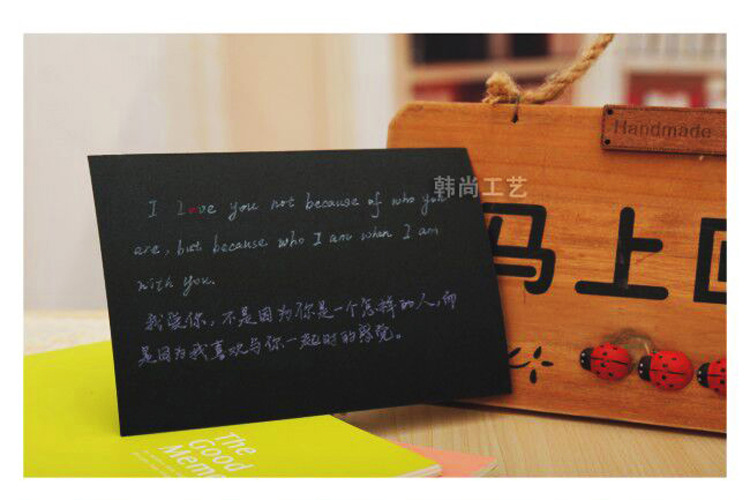 I Love you not because of who you
are, but because who I am when I am
with you.
我爱你,不是因为你是一个怎样的人,而
是因为我喜欢与你一起时的感觉。
韩尚工艺
Handmade
马上回
The
Good
Memo